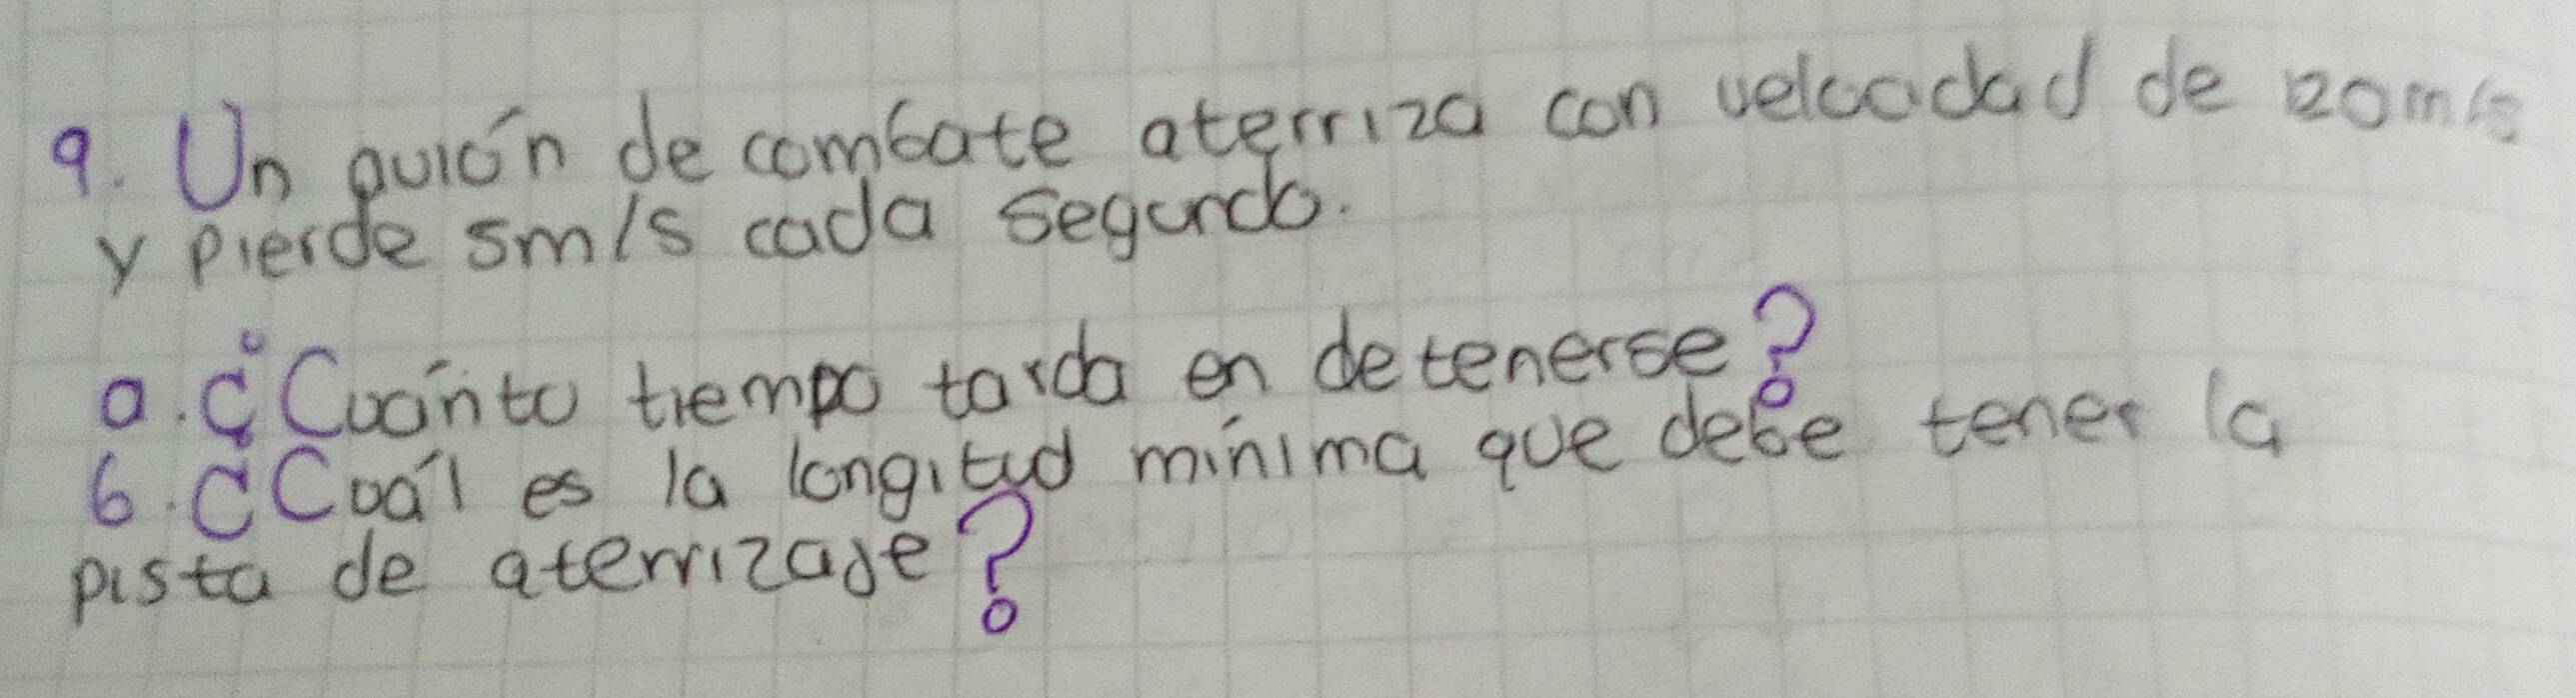 9. Un avión de combate aterriza con velocidad de 120m/s
y pierde 5m/s cada segundo.
a. ¿Cuánto tiempo tarda en detenerse?
b. ¿Cuál es la longitud mínima que debe tener la
pista de aterrizaje?